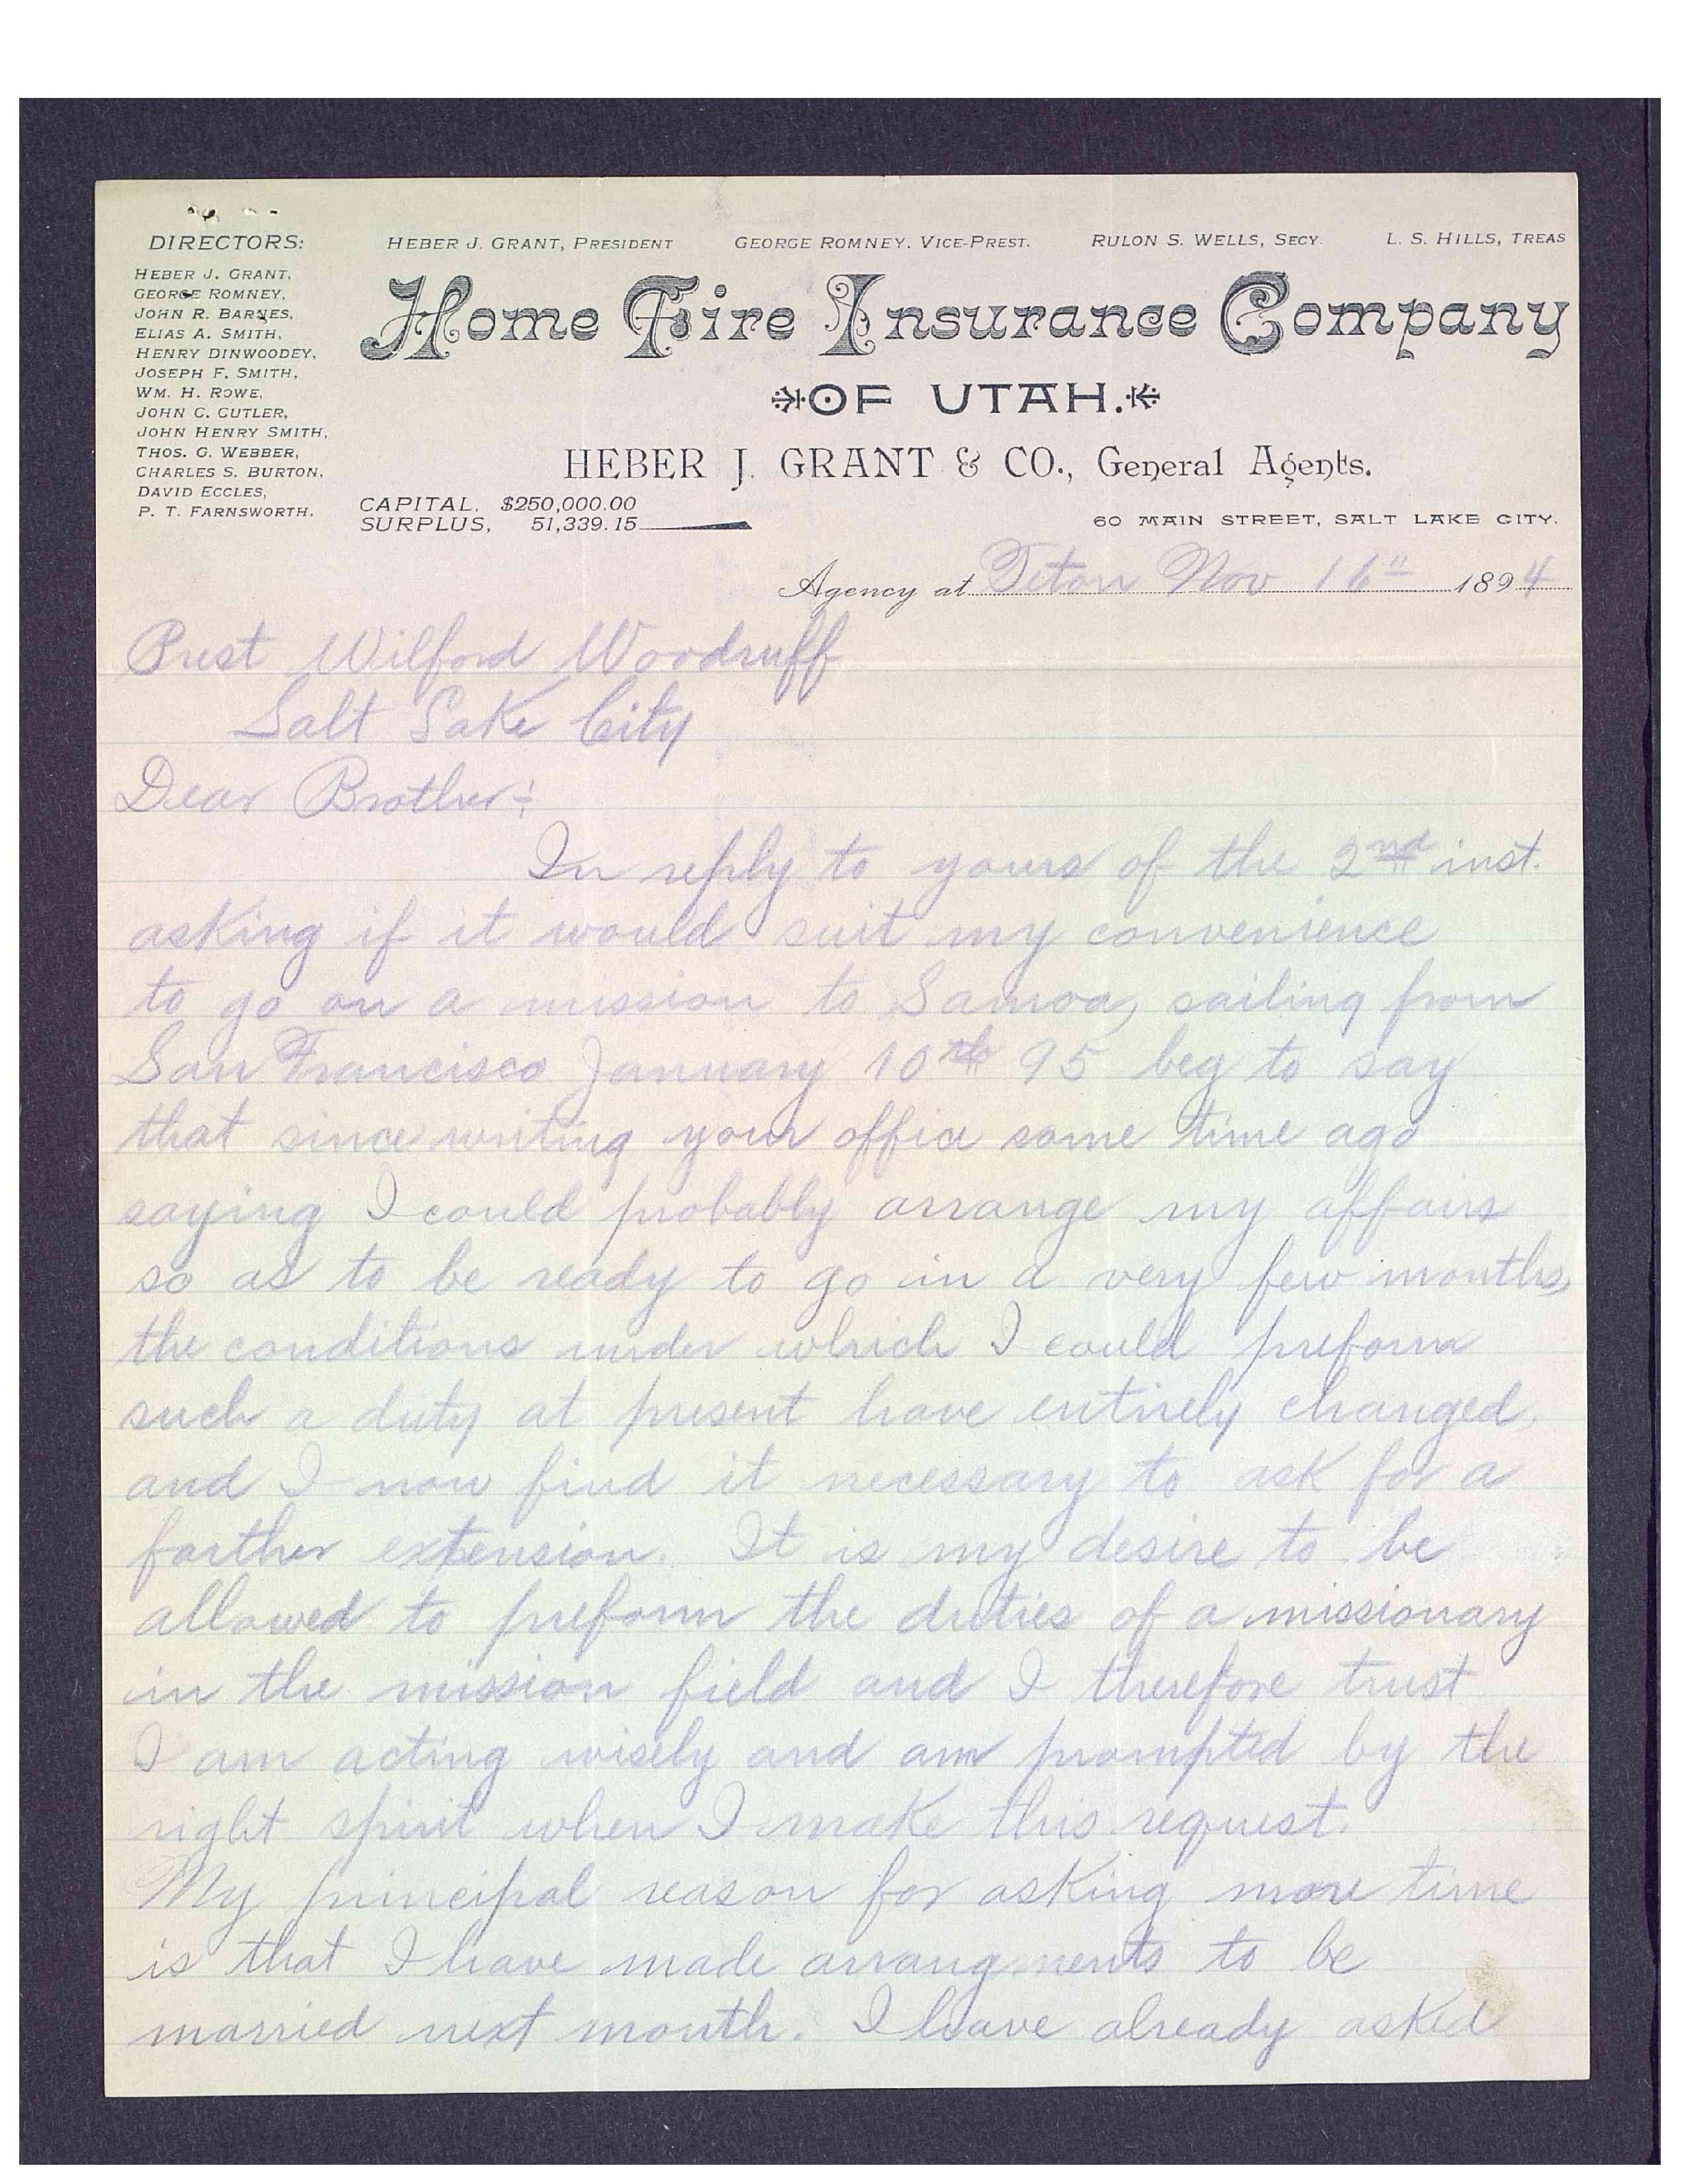 DIRECTORS:
HEBER J. GRANT,
GEORGE ROMNEY,
JOHN R. BARNES,
ELIAS A. SMITH,
HENRY DINWOODEY,
JOSEPH F. SMITH,
WM. H. ROWE,
JOHN C. CUTLER,
JOHN HENRY SMITH,
THOS. G. WEBBER,
CHARLES S. BURTON,
DAVID ECCLES,
P. T. FARNSWORTH.
HEBER J. GRANT, PRESIDENT GEORGE ROMNEY. VICE-PREST. RULON S. WELLS, SECY. L. S. HILLS, TREAS
Home Fire Insurance Company
OF UTAH.
HEBER J. GRANT & CO., General Agents.
CAPITAL, $250,000.00
SURPLUS, 51,339.15
60 MAIN STREET, SALT LAKE CITY.
Agency at Teton Nov 16" 1894
Prest Wilford Woodruff
Salt Lake City
Dear Brother:
In reply to yours of the 2nd inst.
asking if it would suit my convenience
to go on a mission to Samoa, sailing from
San Francisco January 10th 95 beg to say
that since writing your office some time ago
saying I could probably arrange my affairs
so as to be ready to go in a very few months,
the conditions under which I could preform
such a duty at present have entirely changed,
and I now find it necessary to ask for a
farther extension. It is my desire to be
allowed to preform the duties of a missionary
in the mission field and I therefore trust
I am acting wisely and am prompted by the
right spirit when I make this request.
My principal reason for asking more time
is that I have made arrangments to be
married next month. I have already asked